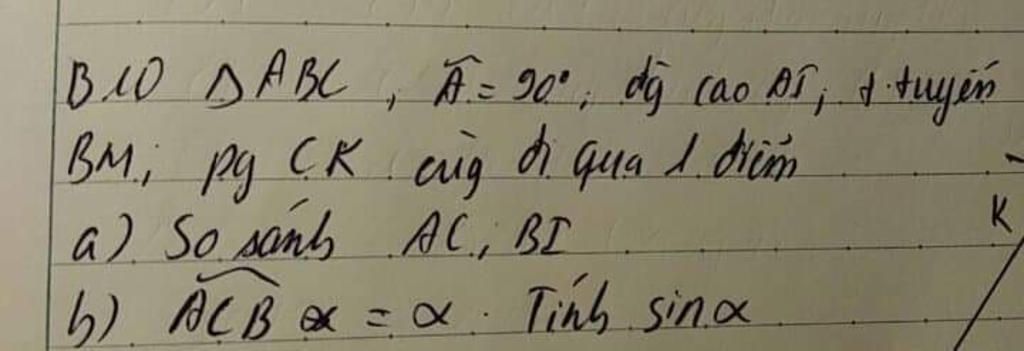 B10 △ABC, Â = 90°, đg cao AI, t.tuyến
BM, pg CK cùg đi qua 1 điểm
a) So sánh AC, BI
b) ACB = α. Tính sinα
K